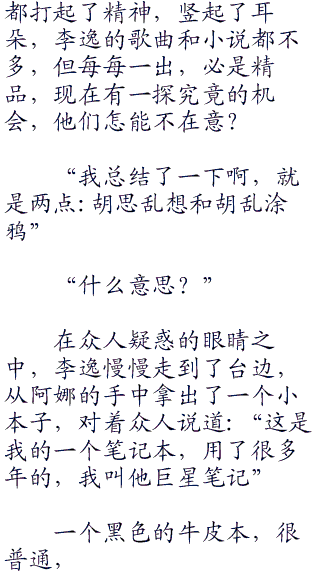 都打起了精神，竖起了耳
朵，李逸的歌曲和小说都不
多，但每每一出，必是精
品，现在有一探究竟的机
会，他们怎能不在意？
“我总结了一下啊，就
是两点：胡思乱想和胡乱涂
鸦”
“什么意思？”
在众人疑惑的眼睛之
中，李逸慢慢走到了台边，
从阿娜的手中拿出了一个小
本子，对着众人说道：“这是
我的一个笔记本，用了很多
年的，我叫他巨星笔记”
一个黑色的牛皮本，很
普通，